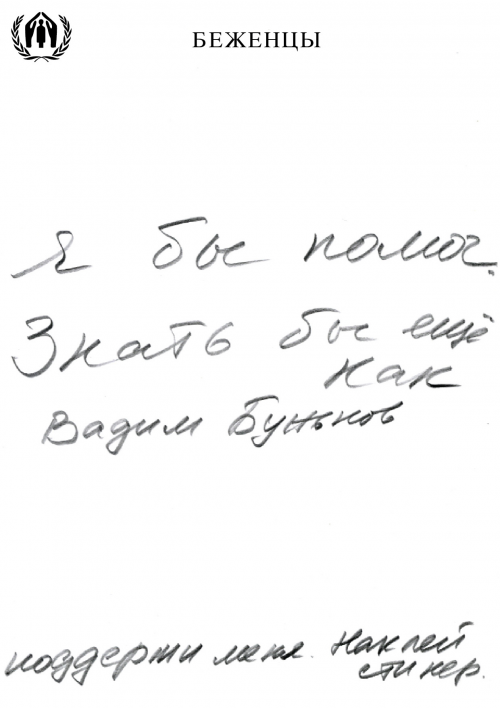 БЕЖЕНЦЫ
Я бы помог.
Знать бы ещё
как
Вадим
поддержи меня. Наклей
стикер.